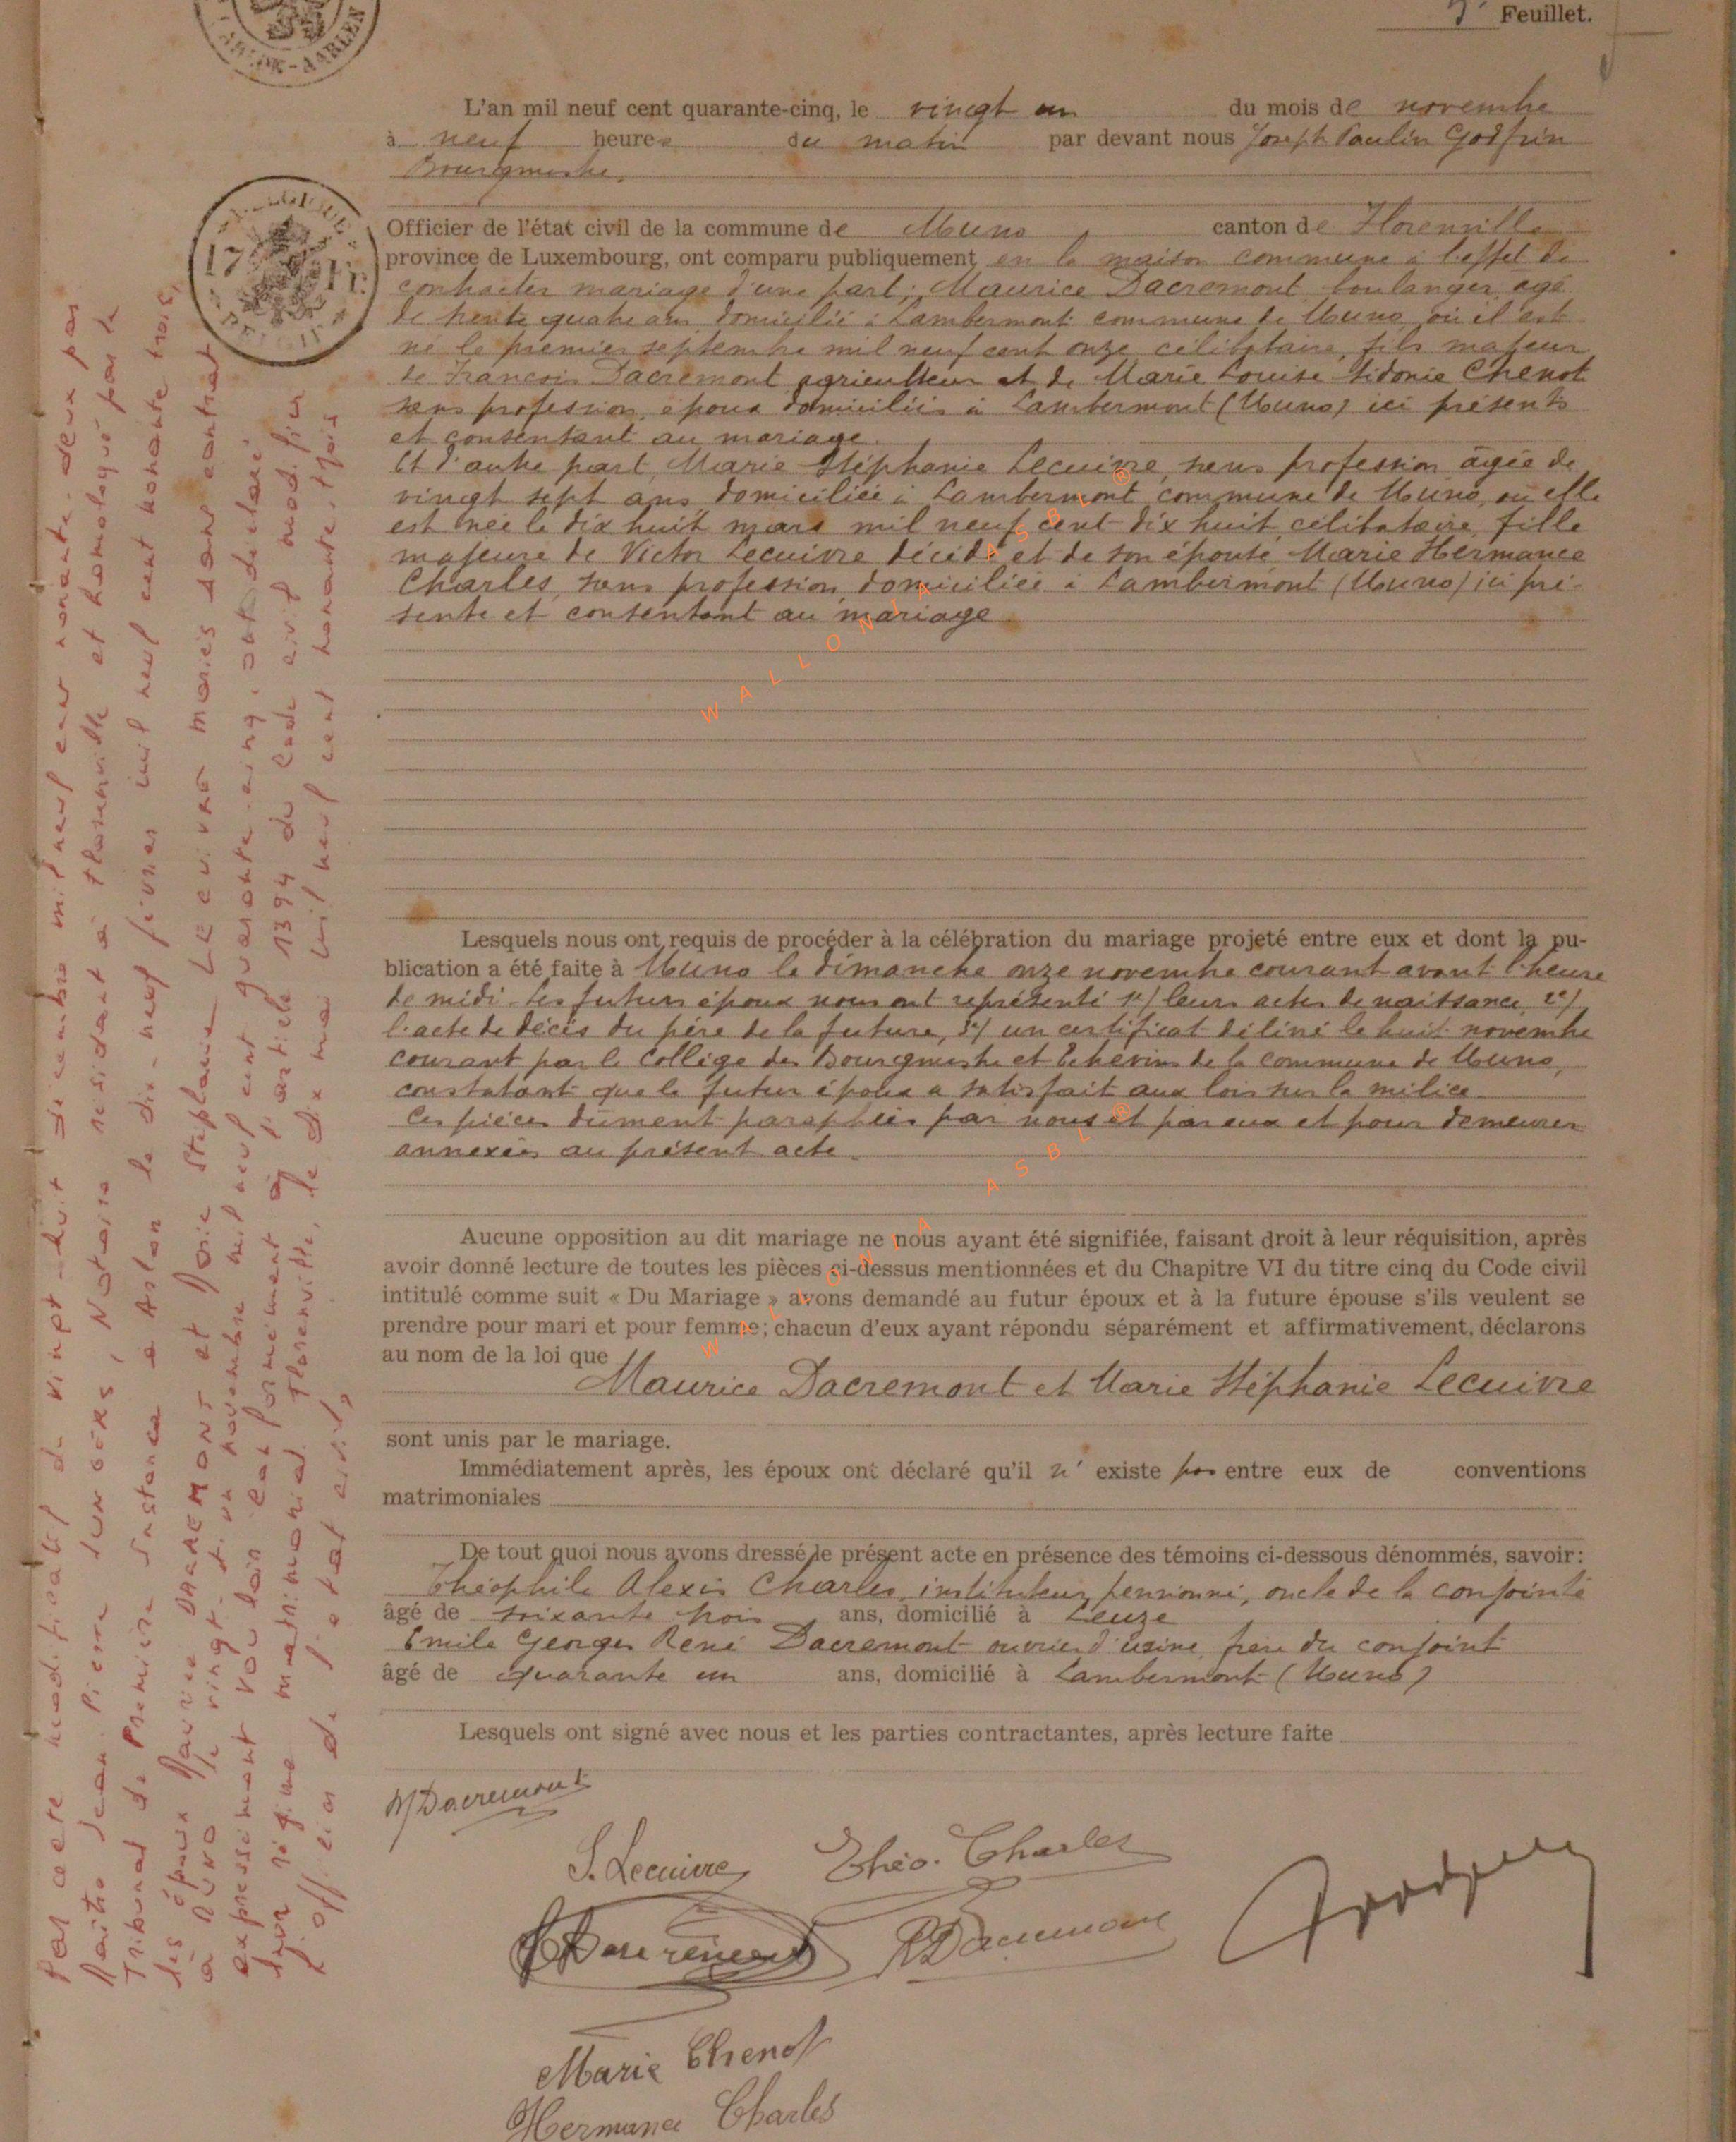 5e Feuillet.
ARLON-AARLEN
L'an mil neuf cent quarante-cinq, le vingt un du mois de novembre
à neuf heures du matin par devant nous Joseph Paulin Godfrin
Bourgmestre.
BELGIQUE
17 Fr.
BELGIE
Officier de l'état civil de la commune de Muno, canton de Florenville
province de Luxembourg, ont comparu publiquement en la maison commune à l'effet de
contracter mariage d'une part; Maurice Dacremont, boulanger, âgé
de trente quatre ans, domicilié à Lambermont commune de Muno, où il est
né le premier septembre mil neuf cent onze, célibataire, fils majeur
de François Dacremont agriculteur et de Marie Louise Sidonie Chenot
sans profession, époux domiciliés à Lambermont (Muno) ici présents
et consentant au mariage.
Et d'autre part, Marie Stéphanie Lecuivre, sans profession âgée de
vingt sept ans domiciliée à Lambermont, commune de Muno, où elle
est née le dix huit mars mil neuf cent dix huit, célibataire, fille
majeure de Victor Lecuivre décédé et de son épouse Marie Hermance
Charles, sans profession, domiciliée à Lambermont (Muno) ici pré-
sente et consentant au mariage.
WALLONIA ASBL ®
Lesquels nous ont requis de procéder à la célébration du mariage projeté entre eux et dont la pu-
blication a été faite à Muno le dimanche onze novembre courant avant l'heure
de midi. Les futurs époux nous ont représenté 1e/ leurs actes de naissance, 2e/
l'acte de décès du père de la future, 3e/ un certificat délivré le huit novembre
courant par le Collège des Bourgmestre et Echevins de la commune de Muno,
constatant que le futur époux a satisfait aux lois sur la milice.
Ces pièces dûment paraphées par nous et par eux et pour demeurer
annexées au présent acte.
WALLONIA ASBL ®
Aucune opposition au dit mariage ne nous ayant été signifiée, faisant droit à leur réquisition, après
avoir donné lecture de toutes les pièces ci-dessus mentionnées et du Chapitre VI du titre cinq du Code civil
intitulé comme suit « Du Mariage » avons demandé au futur époux et à la future épouse s'ils veulent se
prendre pour mari et pour femme; chacun d'eux ayant répondu séparément et affirmativement, déclarons
au nom de la loi que
Maurice Dacremont et Marie Stéphanie Lecuivre
sont unis par le mariage.
Immédiatement après, les époux ont déclaré qu'il n' existe pas entre eux de conventions
matrimoniales
De tout quoi nous avons dressé le présent acte en présence des témoins ci-dessous dénommés, savoir:
Théophile Alexis Charles, instituteur pensionné, oncle de la conjointe
âgé de soixante trois ans, domicilié à Leuze
Emile Georges René Dacremont ouvrier d'usine, frère du conjoint
âgé de quarante un ans, domicilié à Lambermont (Muno)
Lesquels ont signé avec nous et les parties contractantes, après lecture faite
M Dacremont
S. Lecuivre Théo. Charles
Dacremont R Dacremont Godfrin
Marie Chenot
Hermance Charles
Par acte modificatif du vingt-huit décembre mil neuf cent nonante-deux par
Maître Jean-Pierre, Notaire résidant à Florenville et homologué par le
Tribunal de Première Instance à Arlon le dix-neuf février mil neuf cent nonante-trois,
les époux Maurice DACREMONT et Marie Stéphanie LECUIVRE mariés sans contrat
à MUNO le vingt-et-un novembre mil neuf cent quarante-cinq, ont déclaré
expressément vouloir conformément à l'article 1394 du Code civil modifier
leur régime matrimonial. Florenville, le dix mai mil neuf cent nonante-trois
L'officier de l'état civil,